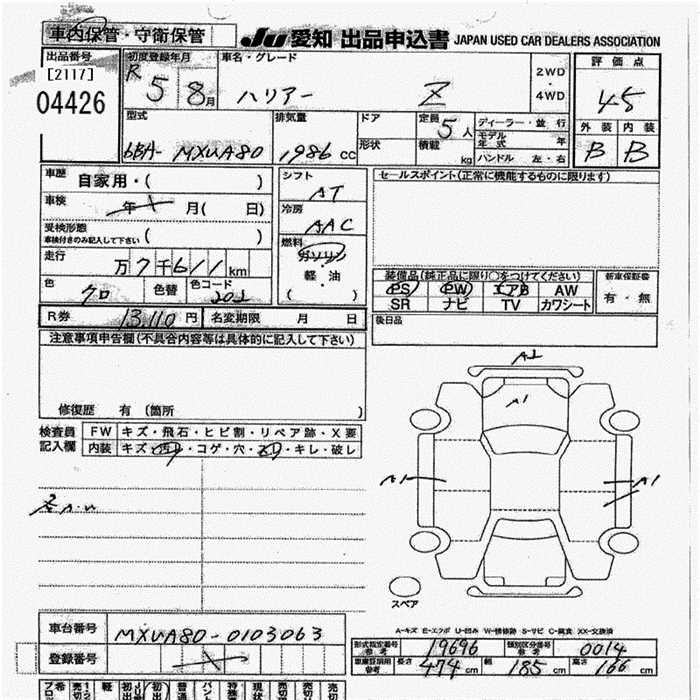 車内保管・守衛保管 Ju 愛知 出品申込書 JAPAN USED CAR DEALERS ASSOCIATION
出品番号 初度登録年月 車名・グレード 2WD ・ 4WD 評価点
[2117] R 5 8月 ハリアー Z 4.5
04426
型式 排気量 ドア 定員 5人 ディーラー・並行 外装 内装
6BA- MXUA80 1986 cc 形状 積載 kg モデル年式 年 B B
ハンドル 左・右
車歴 自家用・( ) シフト AT セールスポイント(正常に機能するものに限ります)
車検 年 月( 日) 冷房 AAC
受検形態 車検付きのみ記入して下さい ( )
走行 万7千611km 燃料 ガソリン 軽・油 ( )
色 クロ 色替 色コード 202
装備品(純正品に限り○をつけてください) 新車保証書
PS PW エアB AW 有・無
SR ナビ TV カワシート
R券 13,110円 名変期限 月 日 後日品
注意事項申告欄(不具合内容等は具体的に記入して下さい)
修復歴 有 (箇所 )
検査員記入欄 FW キズ・飛石・ヒビ割・リペア跡・X要
内装 キズ・汚れ・コゲ・穴・スリ・キレ・破レ
A2
A1
A1
A1
スペア
A-キズ E-エクボ U-凹み W-補修跡 S-サビ C-腐食 XX-交換済
車台番号 MXUA80-0103063
登録番号
形式指定番号 参考 19696 類別区分番号 参考 0014
車庫証明用 参考 長さ 474 cm 幅 185 cm 高さ 166 cm